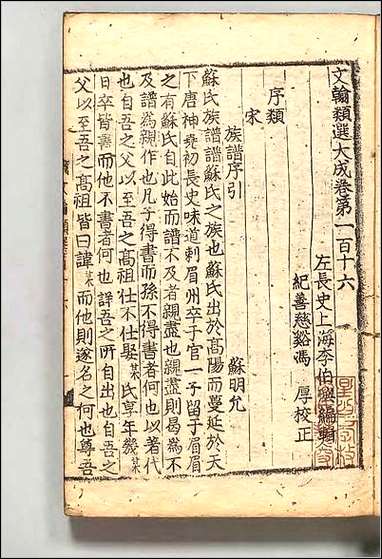 文翰類選大成卷第一百十六
左長史上海李伯璵編輯
紀善慈谿馮　厚校正
序類
宋
族譜序引
蘇明允
蘇氏族譜譜蘇氏之族也蘇氏出於高陽而蔓延於天
下唐神堯初長史味道刺眉州卒于官一子留于眉眉
之有蘇氏自此始而譜不及者親盡也親盡則曷為不
及譜為親作也凡子得書而孫不得書者何也以著代
也自吾之父以至吾之高祖仕不仕娶某氏享年幾某
日卒皆書而他不書者何也詳吾之所自出也自吾之
父以至吾之高祖皆曰諱某而他則遂名之何也尊吾